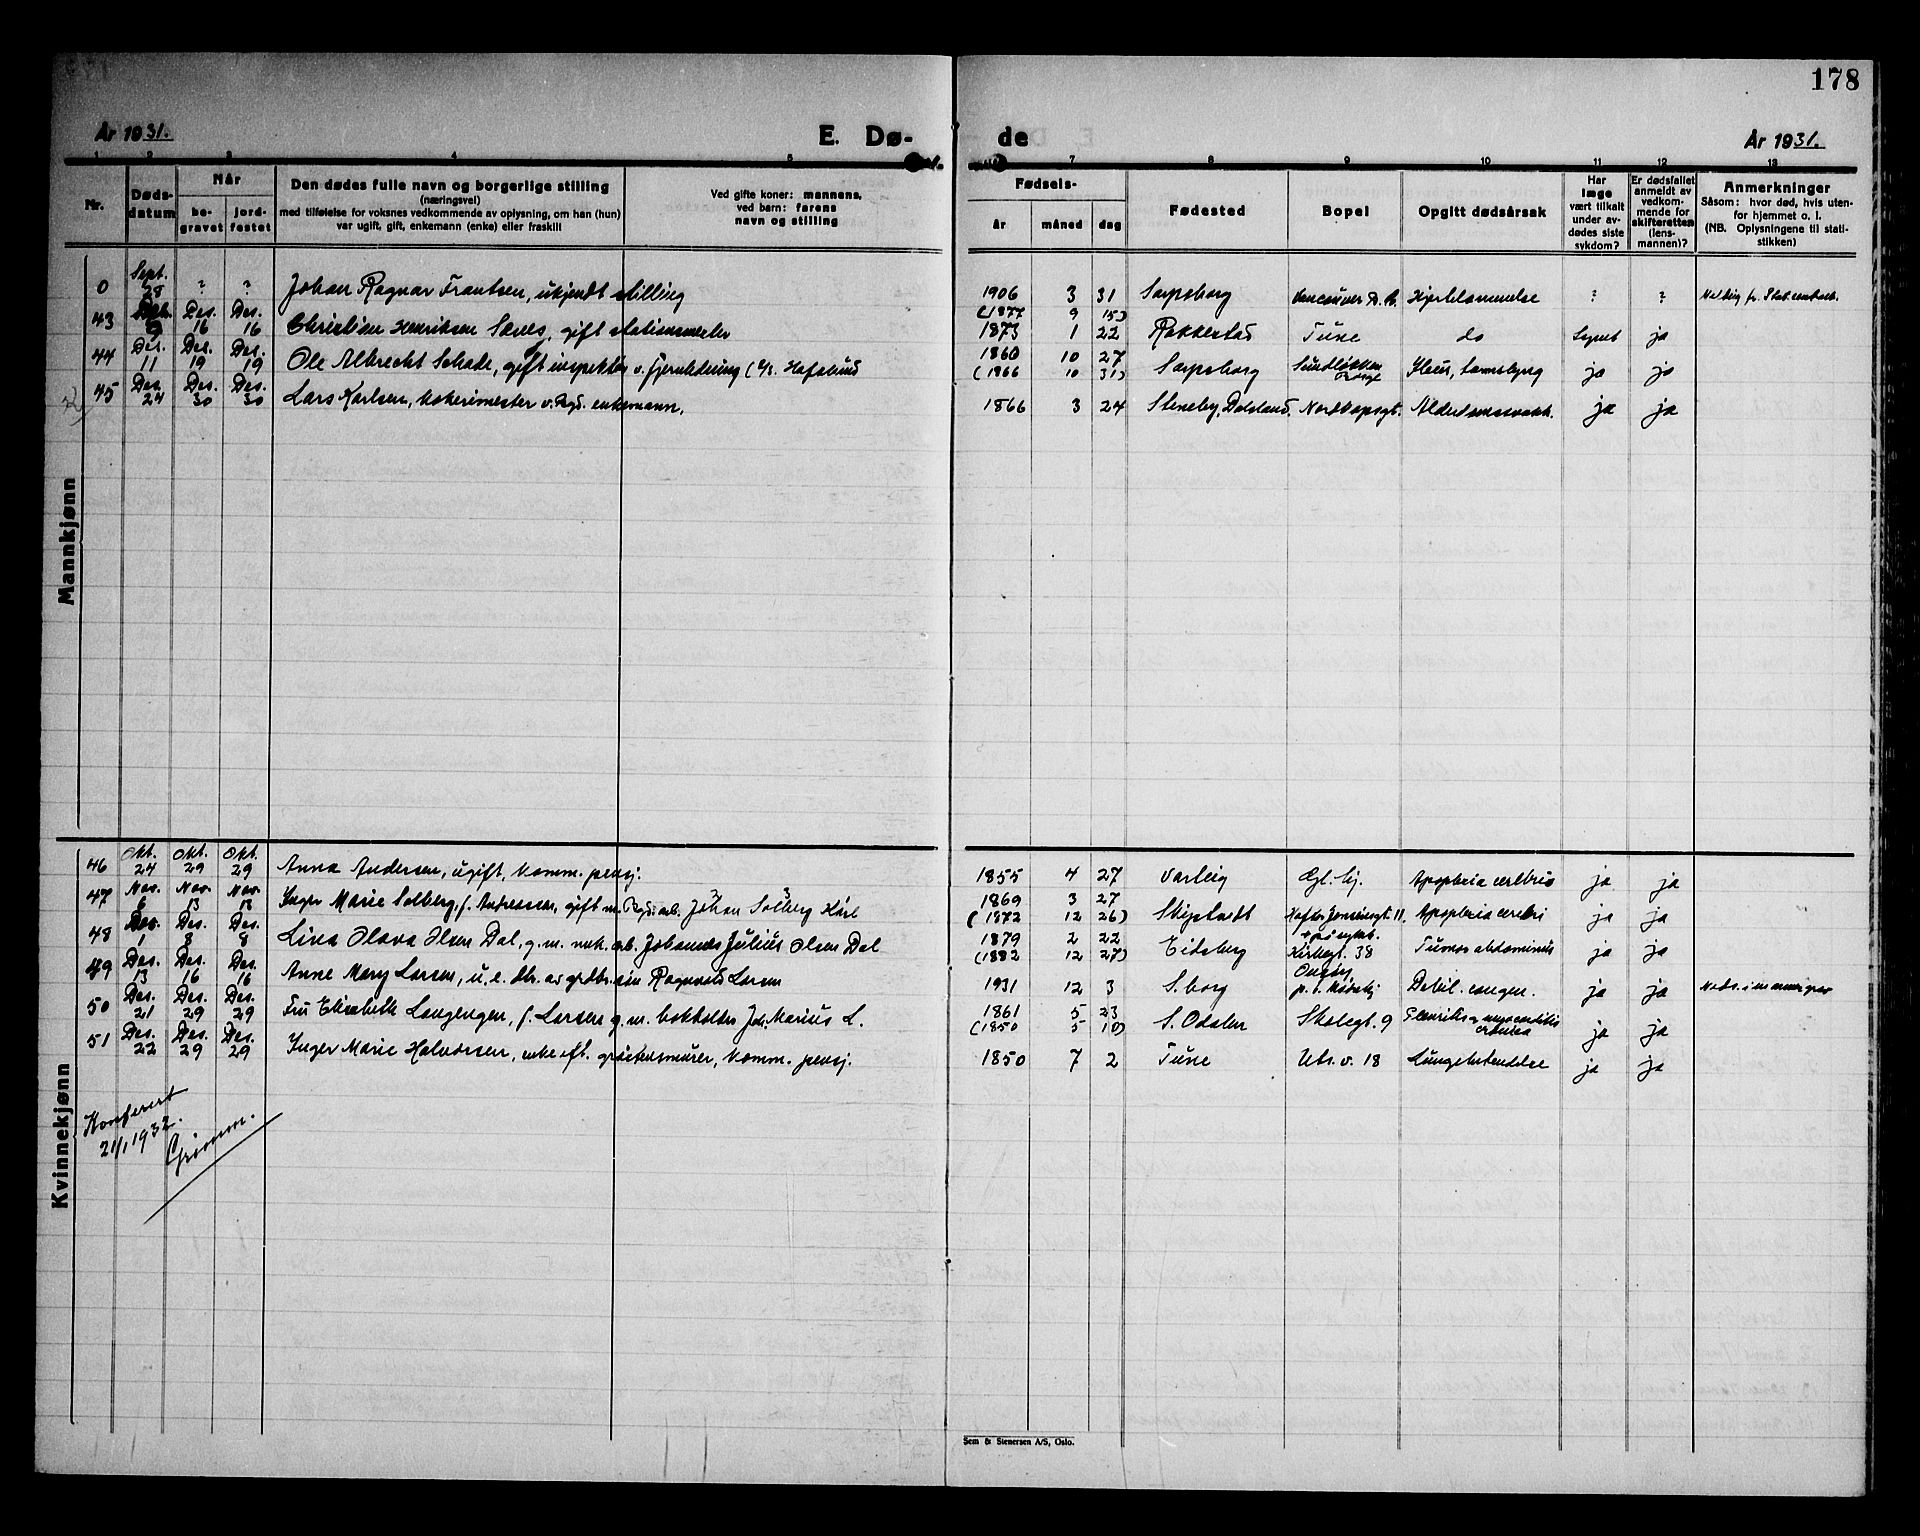 178
År 1931.
E. Dø-
de
År 1931.
1 2 3 4 5 7 8 9 10 11 12 13
Nr.
Døds-
datum
Når
be-
gravet
jord-
festet
Den dødes fulle navn og borgerlige stilling
(næringsvei)
med tilføielse for voksnes vedkommende av oplysning, om han (hun)
var ugift, gift, enkemann (enke) eller fraskilt
Ved gifte koner: mannens,
ved barn: farens
navn og stilling
Fødsels-
år måned dag
Fødested
Bopel
Opgitt dødsårsak
Har
læge
vært tilkalt
under av-
dødes siste
sykdom?
Er dødsfallet
anmeldt av
vedkom-
mende for
skifteretten
(lens-
mannen)?
Anmerkninger
Såsom: hvor død, hvis uten-
for hjemmet o. l.
(NB. Oplysningene til stati-
stikken)
Mannkjønn
0 Sept. 28 ? ? Johan Ragnar Frantsen, ukjendt stilling 1906 3 31 Sarpsborg Vancouver Hjertelammelse ? ?
(1877 9 15)
43 9 Des. 16 Des. 16 Christian Henriksen gift stationsmester 1873 1 22 Rakkestad Tune do ja
44 Des. 11 Des. 19 Des. 19 Ole Albrecht Schade, gift inspektør v. fjernledning (A/s. Hafslund 1860 10 27 Sarpsborg Ileus, ja ja
(1866 10 31)
45 Des. 24 Des. 30 Des. 30 Lars Karlsen, kokerimester v. Bgd. enkemann. 1866 3 24 Steneby, Dalsland. Nordkapsgt. Alderdomssvakh. ja ja
Kvinnekjønn
46 Okt. 24 Okt. 29 Okt. 29 Anna Andersen, ugift, komm. pensj. 1855 4 27 Varteig Gl. hj. Apoplexia cerebri ja ja
47 Nov. 6 Nov. 13 Nov. 13 Inger Marie Solberg, f. Andreassen, gift m. Bgd. arb. Johan Solberg Karl 1869 3 27 Skiptvedt Apoplexia cerebri ja ja
(1872 12 26)
48 1 Des. 8 Des. 8 Lina Olava Olsen Dal, g. m. mek. arb. Johannes Julius Olsen Dal 1879 2 22 Eidsberg Kirkegt. 38 Tumor abdominus ja ja
(1882 12 27)
49 Des. 13 Des. 16 Des. 16 Anne Mary Larsen, u. e. dbr. av grdbr. søn Ragnvald Larsen 1931 12 3 S.borg Onsøy Debil. congen. ja ja
50 Des. 21 Des. 29 Des. 29 Fru Elisabeth Langengen, f. Larsen g. m. bokholder Joh. Marius L. 1861 5 23 S. Odalen Skolegt. 9 ja ja
(1850 5 10)
51 Des. 22 Des. 29 Des. 29 Inger Marie Halvorsen, enke eft. grøstensmurer, komm. pensj. 1850 7 2 Tune Uts. v. 18 Lungebetendelse ja ja
Konferert
21/1 1932.
Grimm.
Sem & Stenersen A/S, Oslo.